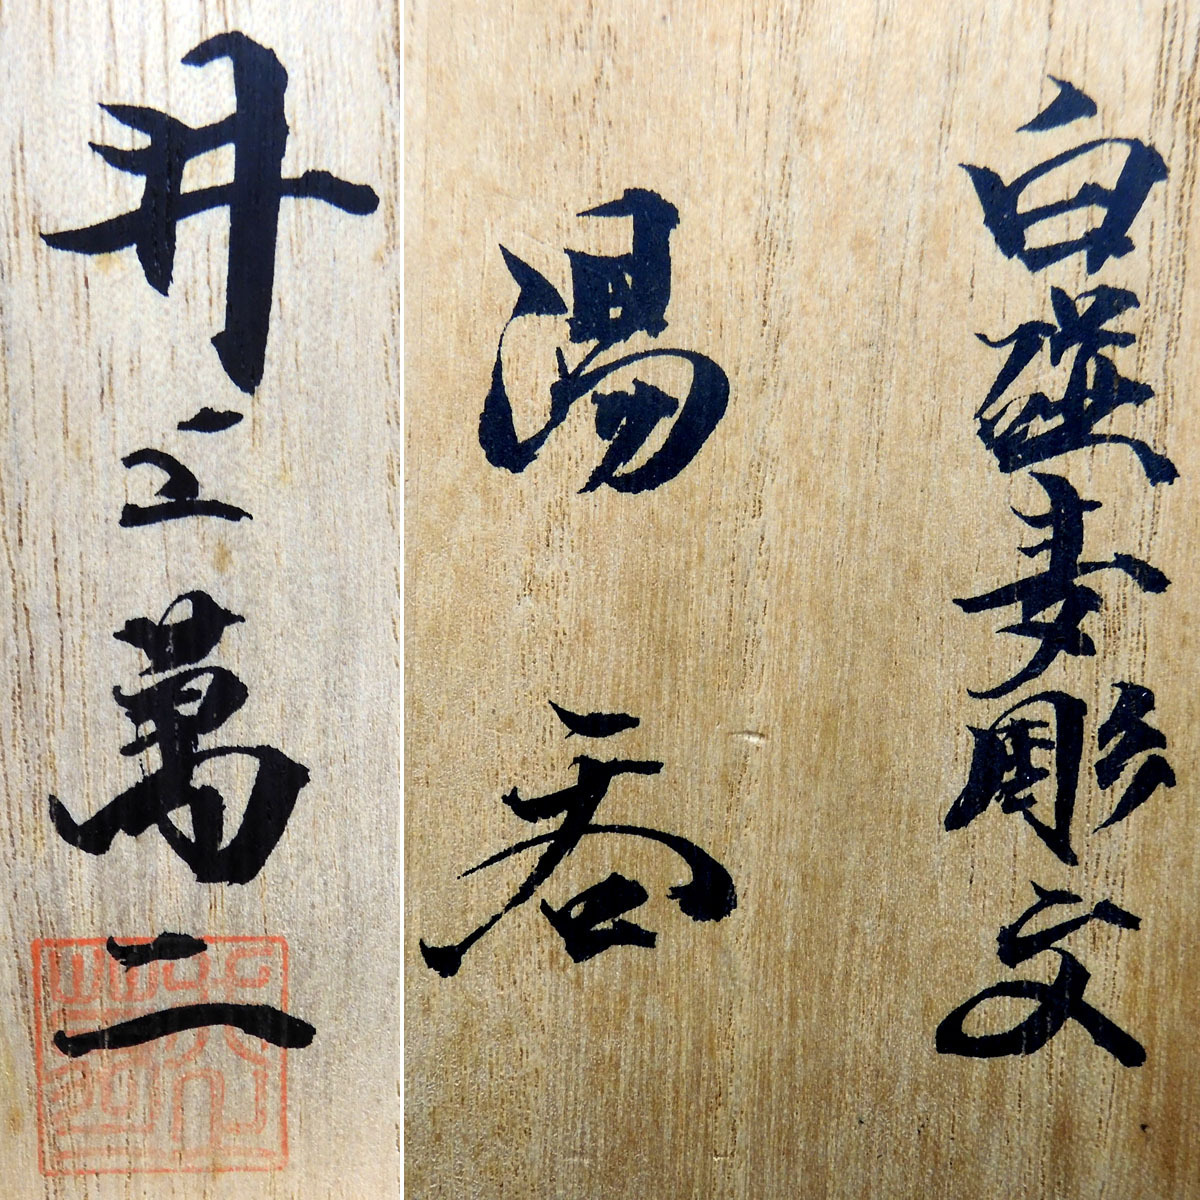 白磁麦彫文
湯呑
井上萬二